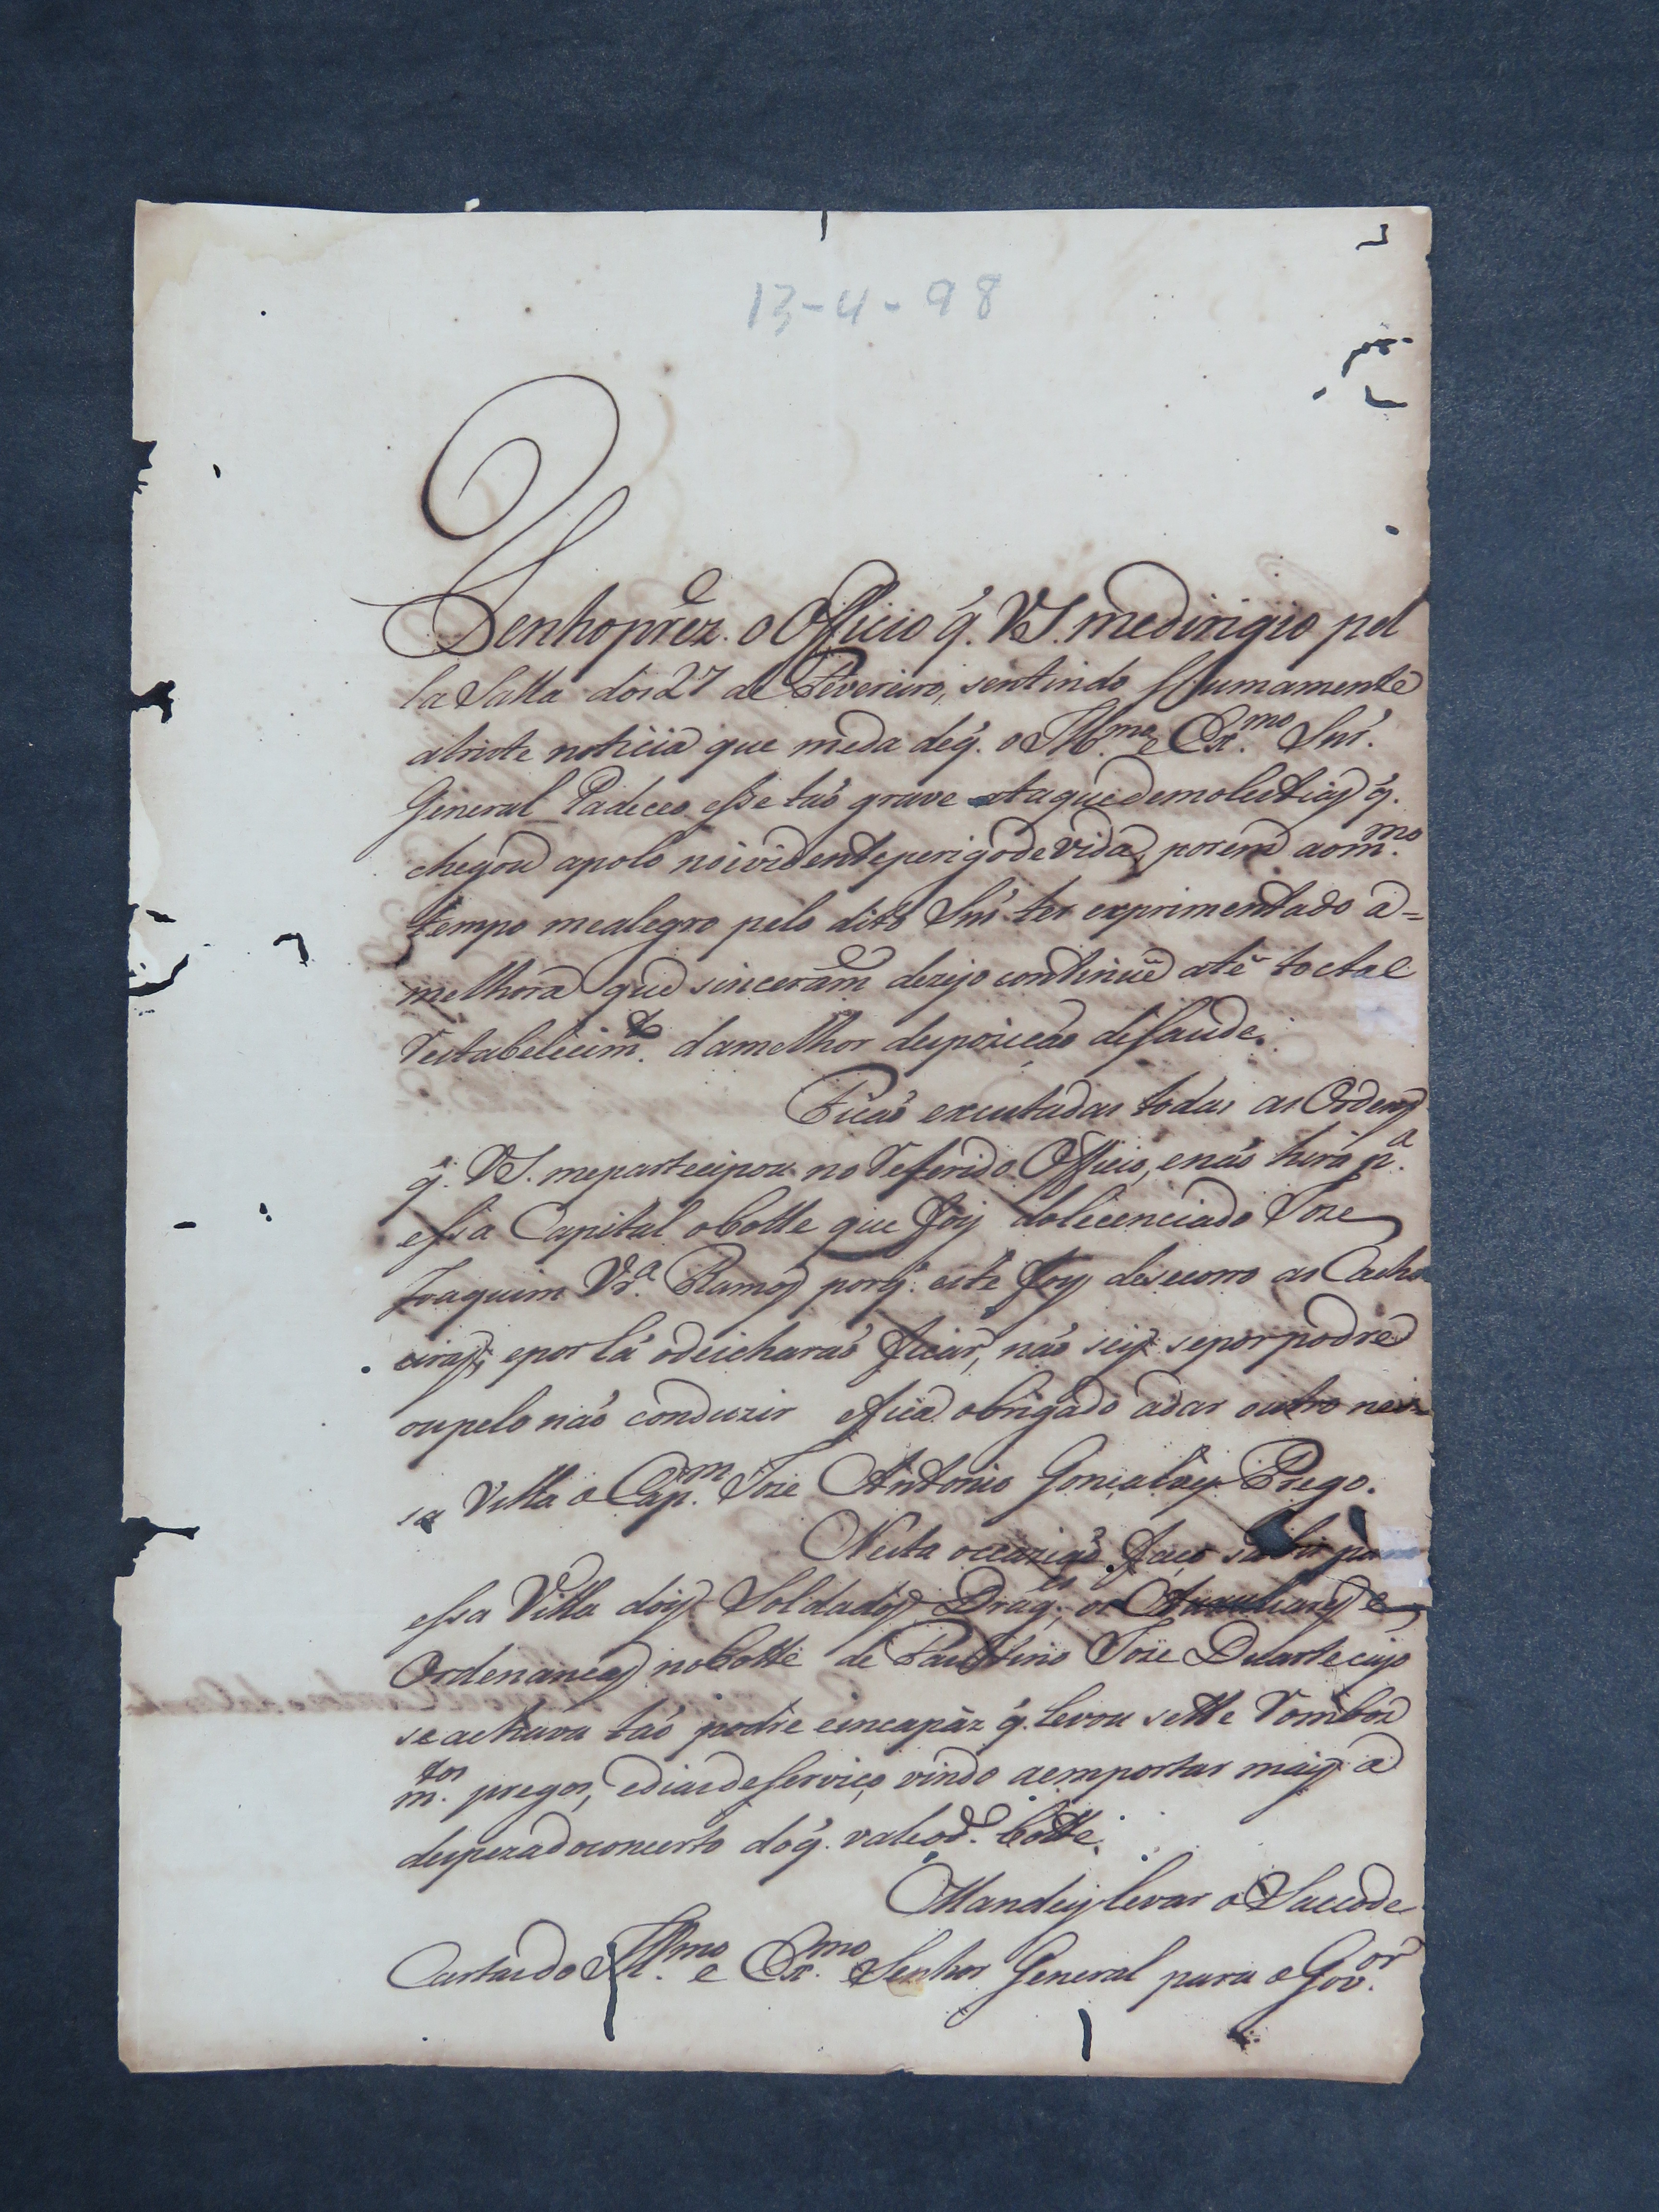 13-4-98
Tenho prez.e o Officio q̃. VS. medirigio pel
la Salla dos 27 de Fevereiro, sentindo sumamente
a triste noticia que meda deq̃. o Ill.mo e Ex.mo Snr̃.
General Padeceo esse taõ grave ataque demolestias q̃.
chegou apolo noividenteperigo de vida, porem aom.mo
tempo mealegro pelo dito Snr̃ ter exprimentado a=
melhora que sinceram.e dezejo continue atê toctal
restabelecim.to damelhor despozicaõ desaude.
Ficaõ executadas todas as Ordens
q̃. VS. mepartecipou no referido Officio, enaõ hirá p.a
essa Capital obotte que foy dolecenciado Joze
Joaquim Vr.a Ramos porq̃. este foy desecorro as Cacho
eiras, epor lá odeicharaõ ficar, naõ sey sepor podre
oupelo naõ conduzir efica obrigado adar outro nes=
sa Villa o Cap.m Joze Antonio Gonçalves Prego.
Nesta occaziaõ faço subir para
essa Villa dois Soldados Drag.es os Auxiliares e
Ordenancas nobotte de Faustino Joze Duarte cujo
se achava taõ podre eincapàz q̃. levou sette rombos
m.tos pregos, ediasdeserviço, vindo aemportar mais a
despezadoconcerto doq̃. valeod.o botte.
Mandey levar o Saccode
Cartasdo Ill.mo e Ex.mo Senhor General para o Gov.or